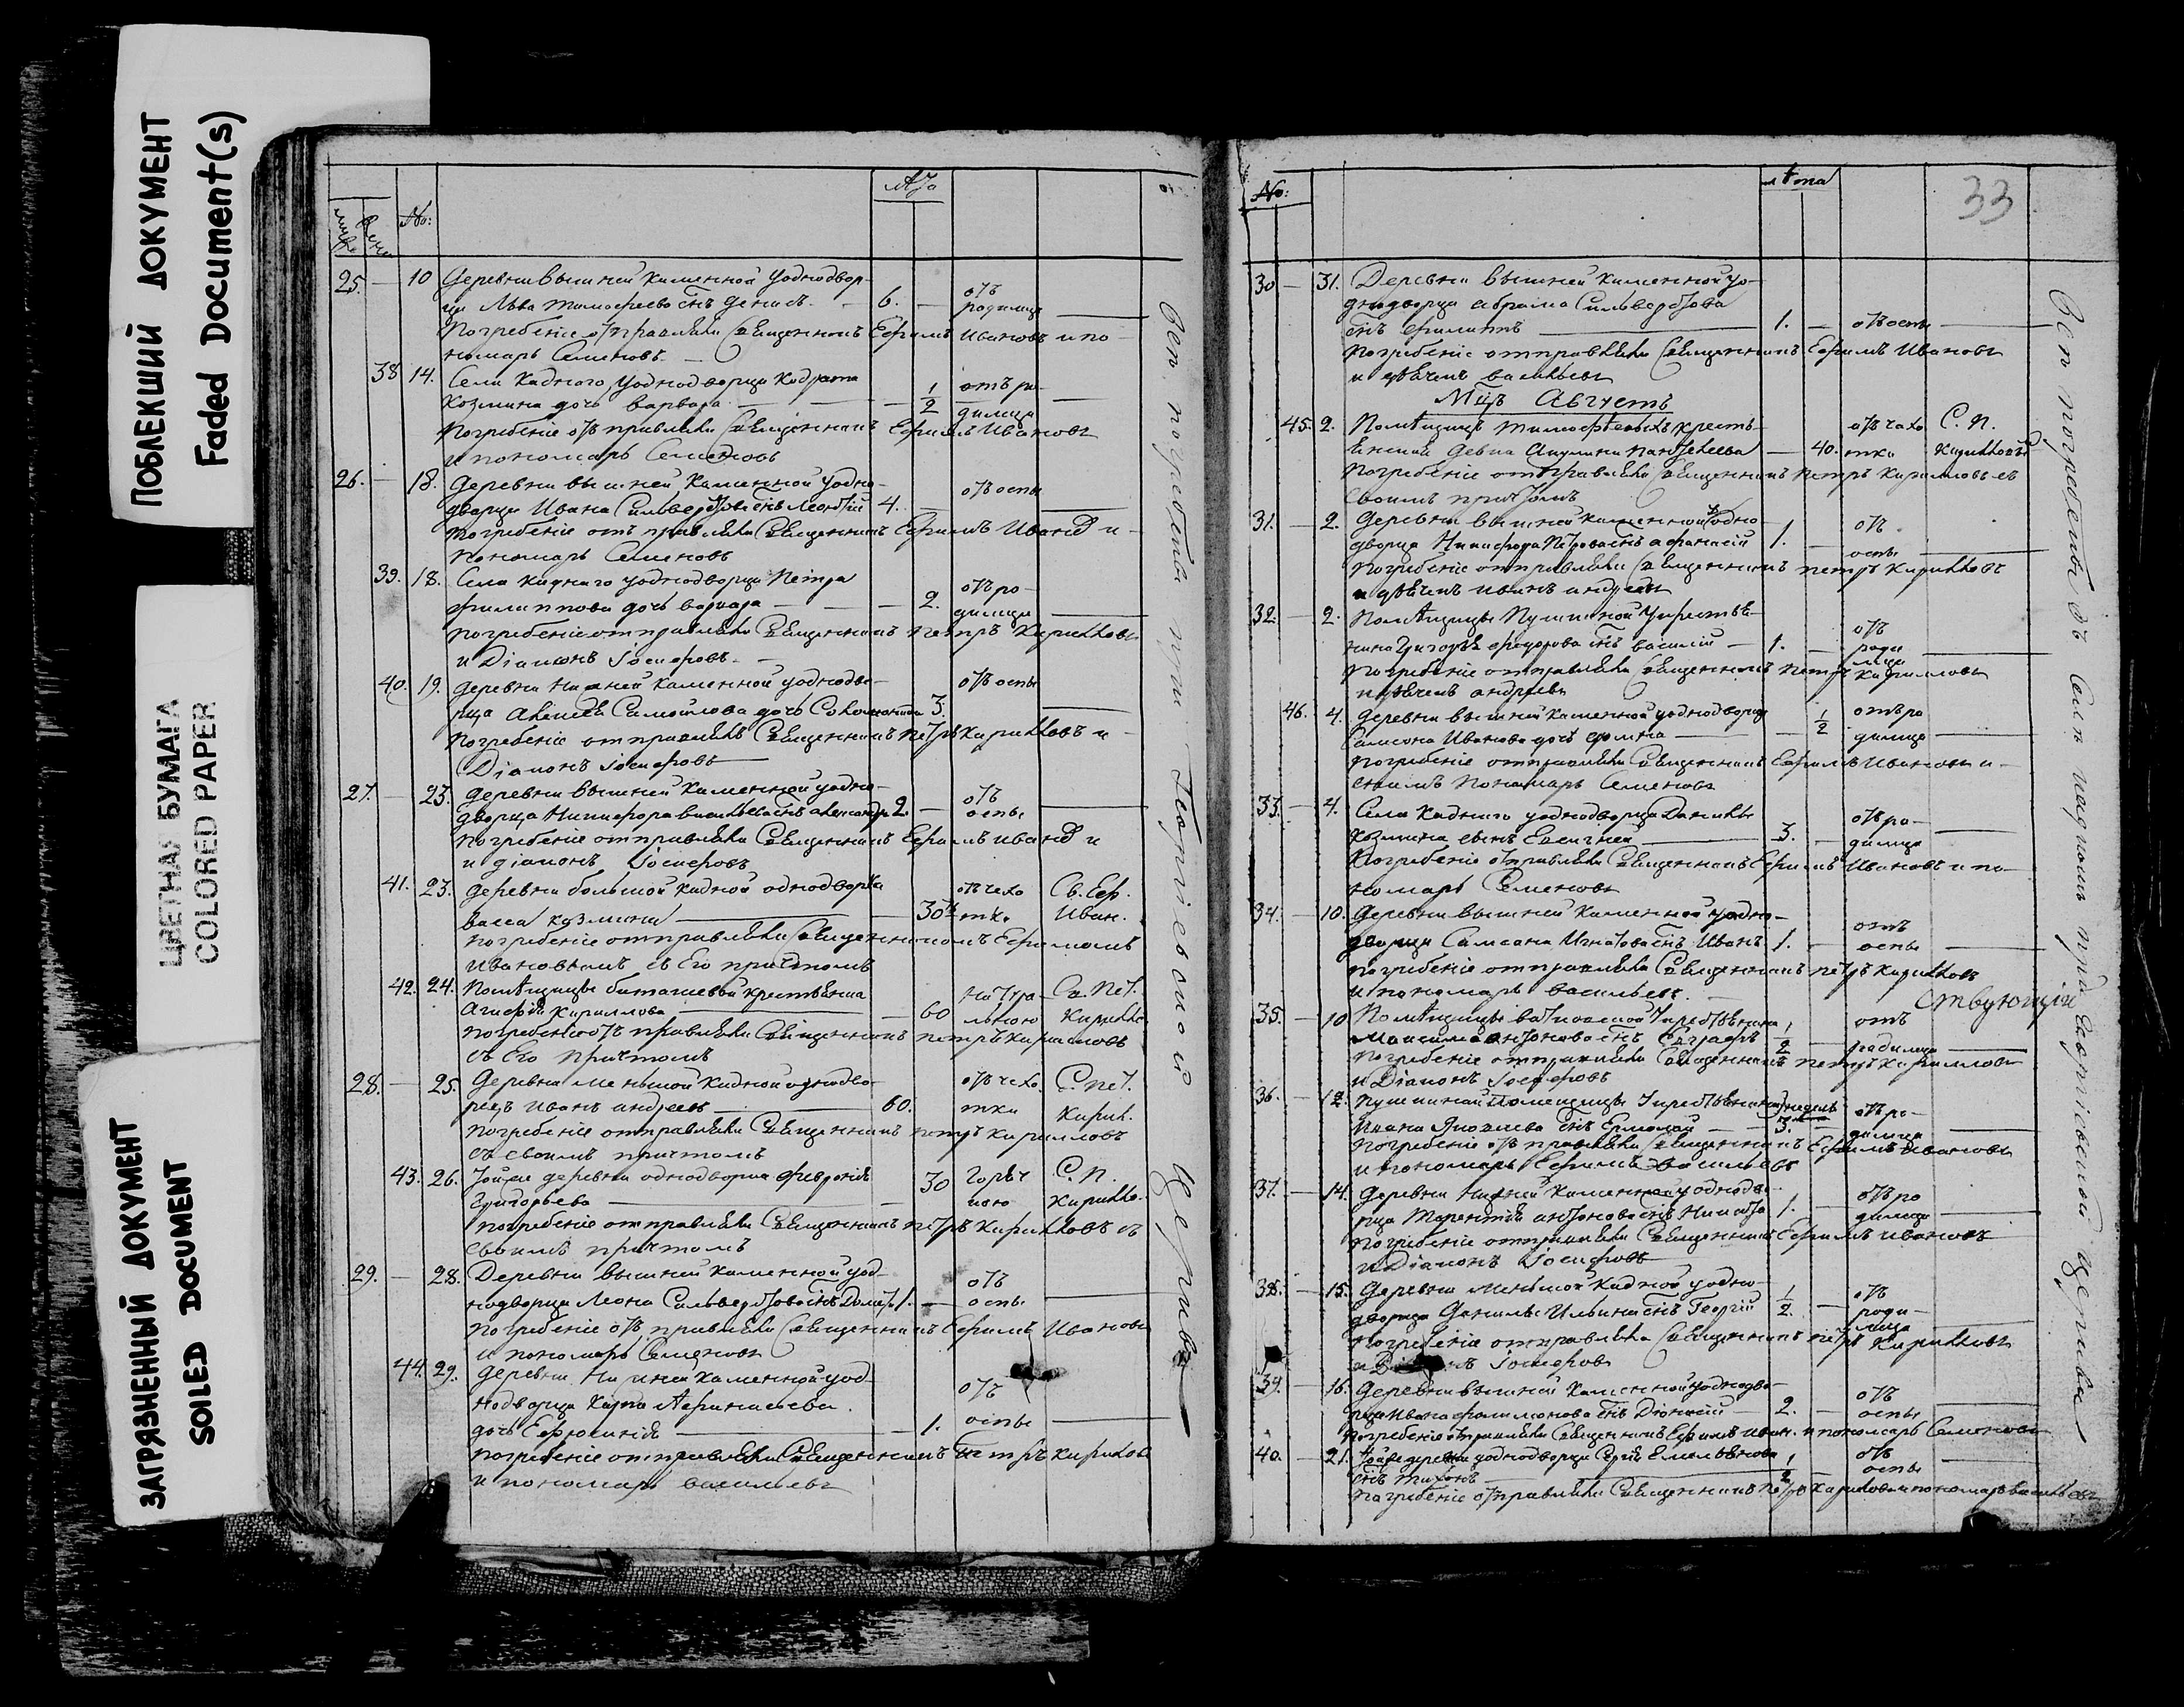 ПОБЛЕКШИЙ ДОКУМЕНТ
Faded Document(s)
ЦВЕТНАЯ БУМАГА
COLORED PAPER
ЗАГРЯЗНЕННЫЙ ДОКУМЕНТ
SOILED DOCUMENT
№:
25. — 10 Деревни вышней каменной уоднодвор-
ца Льва Тимофеева снъ Денисъ — 6. — отъ родимца
Погребение отправляли Священникъ Ефимъ Ивановъ и по-
номарь Семеновъ
38 14. Села Кадного уоднодворца Кодрата
Козмина дочь Варвара — 1/2 отъ ро-димца
Погребение отправляли Священникъ Ефимъ Ивановъ
и пономарь Семеновъ
26. — 18. Деревни вышней каменной уодно-
дворца Ивана Сильверстова снъ Леонтій 4. — отъ оспы
Погребение отъправляли Священникъ Ефимъ Ивановъ и
пономарь Семеновъ
39. 18. Села Каднаго уоднодворца Петра
Филиппова дочь Варвара — 2. отъ ро-димца
погребение отправляли Священникъ Петръ Кирилловъ
и Діаконъ Іосифовъ
40. 19. Деревни Нижней каменной уоднодво-
рца Алексея Самойлова дочь 3. отъ оспы
Погребение отправляли Священникъ Петръ Кирилловъ и
Діаконъ Іосифовъ
27. — 23. Деревни вышней каменной уодно-
дворца Никифора Васильева снъ Александръ 2. — отъ оспы
погребение отправляли Священникъ Ефимъ Ивановъ и
и діаконъ Іосифовъ
41. 23. Деревни большой Кадной однодворка
Васса Козмина — 30 отъ чахотки Св. Еф. Иван.
погребение отправляли Священникомъ Ефимомъ
Ивановымъ съ Его причтомъ
42. 24. Помѣщицы крестьянка
Кириллова — 60 натуральною Св. Пет. Кирилло.
погребение отъправляли Священникъ Петръ Кирилловъ
съ Его причтомъ
28. — 25. Деревни меньшой Кадной однодво-
рецъ Иванъ Андреевъ — 60. отъ чахотки С. Пет. Кирил.
погребение отправляли Священникъ Петръ Кирилловъ
съ своимъ причтомъ
43. 26. Тойже деревни однодворка Феврония
Григорьева — 30 горячкою С. П. Кирилло.
погребение отправляли Священникъ Петръ Кирилловъ съ
своимъ причтомъ
29. — 28. Деревни вышней каменной уод-
нодворца Леона Сильверстова снъ 1. — отъ оспы
погребение отъправляли Священникъ Ефимъ Ивановъ
и пономарь Семеновъ
44. 29. Деревни Нижней каменной уод-
нодворца Карпа Афанасьева
дочь Ефросинія — 1. отъ оспы
погребение отправляли Священникъ Петръ Кирилловъ
и пономарь Васильевъ
Сей погребеніи при Георгіевской Церкви
№: лѣта 33
30 — 31. Деревни вышней каменной уо-
днодворца Абрама Сильверстова
снъ Филиппъ — 1. — отъ оспы
погребение отправляли Священникъ Ефимъ Ивановъ
и дьячекъ Васильевъ
Мцъ Августъ
45. 2. Помѣщицъ Тимофеевыхъ кресть-
янская девка Акулина Пантелеева — 40. отъ чахотки С. П. Кирилловъ
погребение отправляли Священникъ Петръ Кирилловъ съ
своимъ причтомъ
31. — 2. Деревни вышней каменной уодно-
дворца Никифора Петрова снъ Афанасій 1. — отъ оспы
погребение отправляли Священникъ Петръ Кирилловъ
и дьячекъ Иванъ Андреевъ
32. — 2. Помѣщицы Пушкиной укрестья-
нина Григорья Федорова снъ Василій — 1. — отъ родимца
погребение отправляли Священникъ Петръ Кирилловъ
и дьячекъ Андреевъ
46. 4. Деревни вышней каменной уоднодворца
Самсона Иванова дочь Фекла — 1/2 отъ родимца
погребение отправляли Священникъ Ефимъ Ивановъ и
своимъ пономарь Семеновъ
33. — 4. Села Каднаго уоднодворца Данилы
Козмина сынъ Евсигней — 3. — отъ ро-димца
погребение отправляли Священникъ Ефимъ Ивановъ и по-
номарь Семеновъ
34. — 10. Деревни вышней каменной уодно-
дворца Самсона Игнатова снъ Иванъ 1. — отъ оспы
погребение отправляли Священникъ Петръ Кирилловъ
и пономарь Васильевъ
35. — 10 Помѣщицы укрестьянина
Максима Антонова снъ Евграфъ 1/2 — отъ родимца
погребение отправляли Священникъ Петръ Кирилловъ
и Діаконъ Іосифовъ
36. — 12. Пушкиной помещицы укрестьянина
Ивана Яковлева снъ Ермолай — 3. недель отъ ро-димца
погребение отъправляли Священникъ Ефимъ Ивановъ
и пономарь Ефимъ Васильевъ
37. — 14. Деревни Нижней каменной уоднодво-
рца Терентія Антонова снъ Никита 1. — отъ родимца
погребение отправляли Священникъ Ефимъ Ивановъ
и Діаконъ Іосифовъ
38. — 15. Деревни меньшой Кадной уодно-
дворца Данилы Ильина снъ Георгій 1/2. — отъ родимца
погребение отправляли Священникъ Петръ Кирилловъ
и Іосифовъ
39. — 16. Деревни вышней каменной уоднодво-
рца Ивана Филимонова снъ Діонисій — 2. — отъ оспы
погребение отправляли Священникъ Ефимъ Иван. и пономарь Семеновъ
40. — 21. Тойже деревни уоднодворца Сергѣя Емельянова
снъ Тихонъ — 1/2 — отъ оспы
погребение отправляли Священникъ Петръ Кирилловъ и пономарь Васильевъ
ствующій